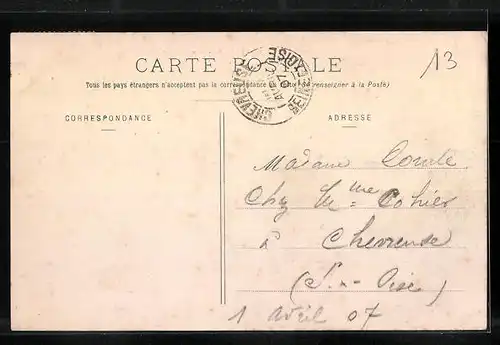 CARTE POSTALE
13
Tous les pays étrangers n'acceptent pas la correspondance (se renseigner à la Poste)
CORRESPONDANCE
ADRESSE
Madame Comte
Chz Mme Cohier
à Chevreuse
(S.-- Oise)
1 Avril 07